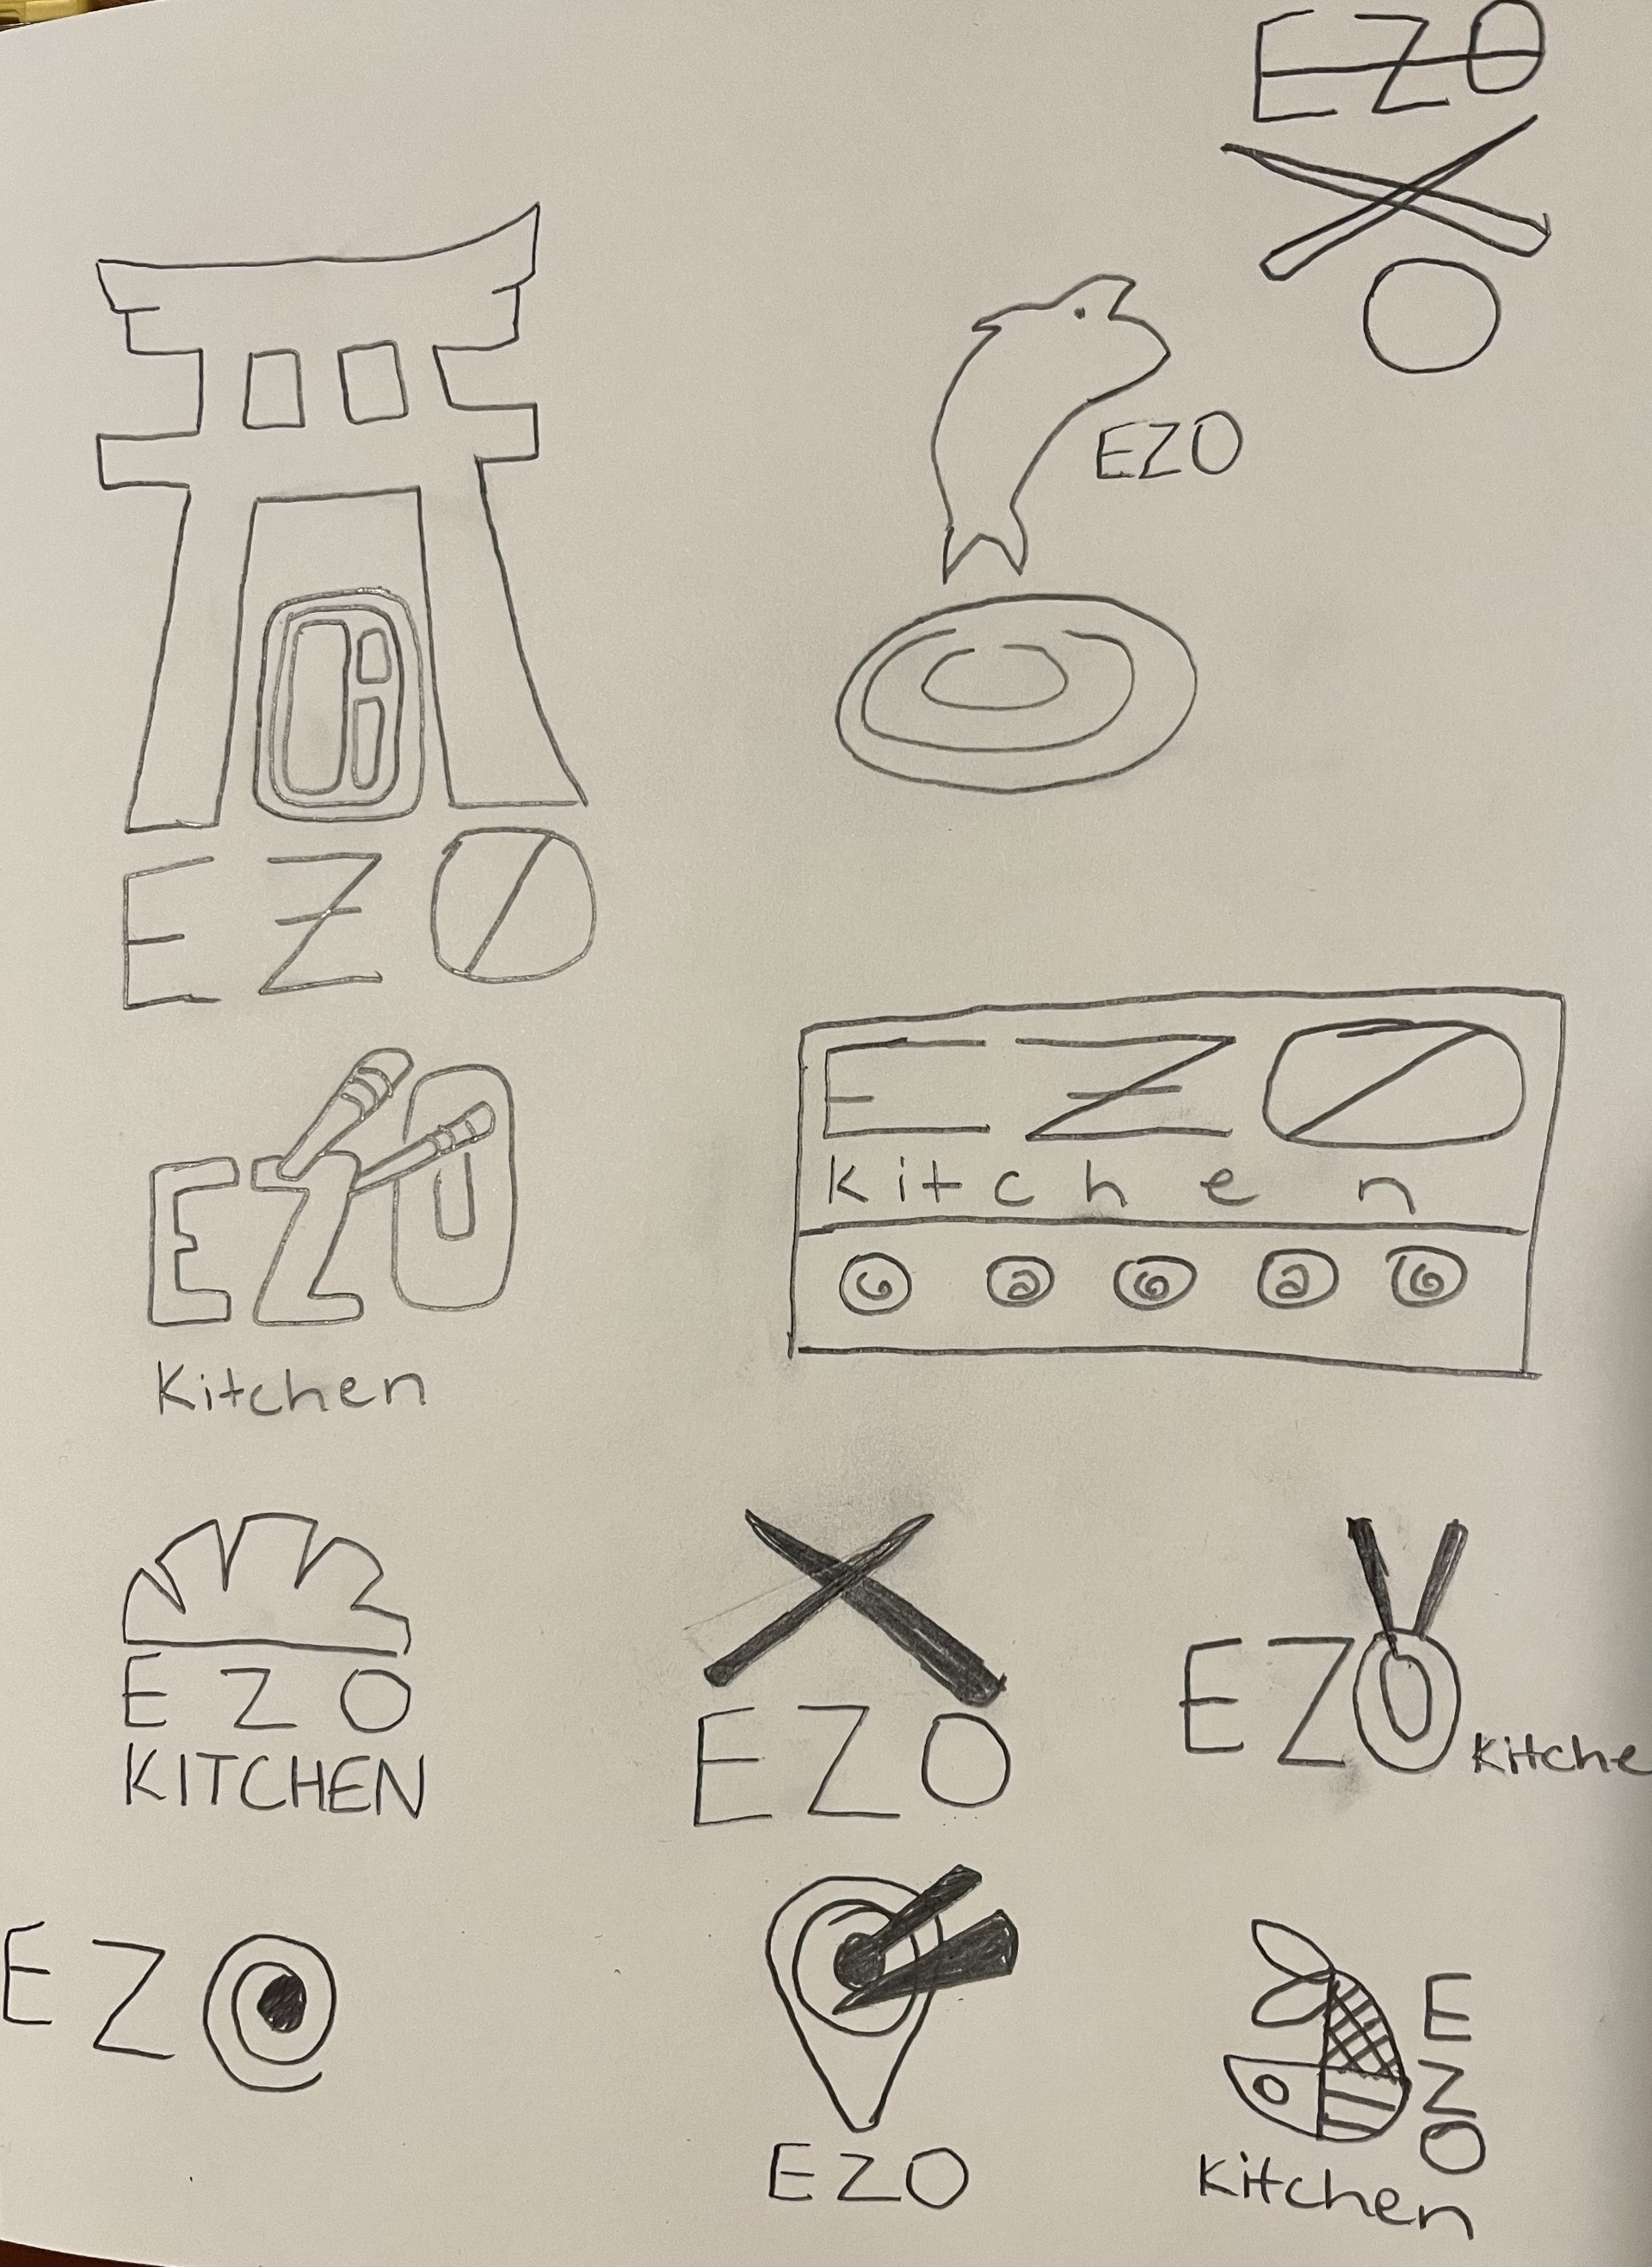 EZO
EZO
EZO
EZO
Kitchen
EZO
Kitchen
EZO
KITCHEN
EZO
EZO
Kitche
EZO
EZO
E
Z
O
Kitchen